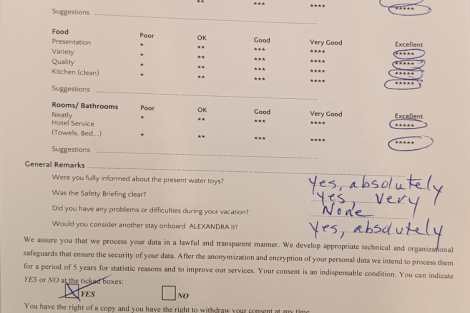 ** *** **** *****
Suggestions
Food Poor OK Good Very Good Excellent
Presentation * ** *** **** *****
Variety * ** *** **** *****
Quality * ** *** **** *****
Kitchen (clean) * ** *** **** *****
Suggestions
Rooms/ Bathrooms Poor OK Good Very Good Excellent
Neatly * ** *** **** *****
Hotel Service
(Towels, Bed...) * ** *** **** *****
Suggestions
General Remarks
Were you fully informed about the present water toys? Yes, absolutely
Was the Safety Briefing clear? Yes, very
Did you have any problems or difficulties during your vacation? None
Would you consider another stay onboard ALEXANDRA II? Yes, absolutely
We assure you that we process your data in a lawful and transparent manner. We develop appropriate technical and organizational
safeguards that ensure the security of your data. After the anonymization and encryption of your personal data we intend to process them
for a period of 5 years for statistic reasons and to improve our services. Your consent is an indispensable condition. You can indicate
YES or NO at the ticked boxes:
YES NO
You have the right of a copy and you have the right to withdraw your consent at any time